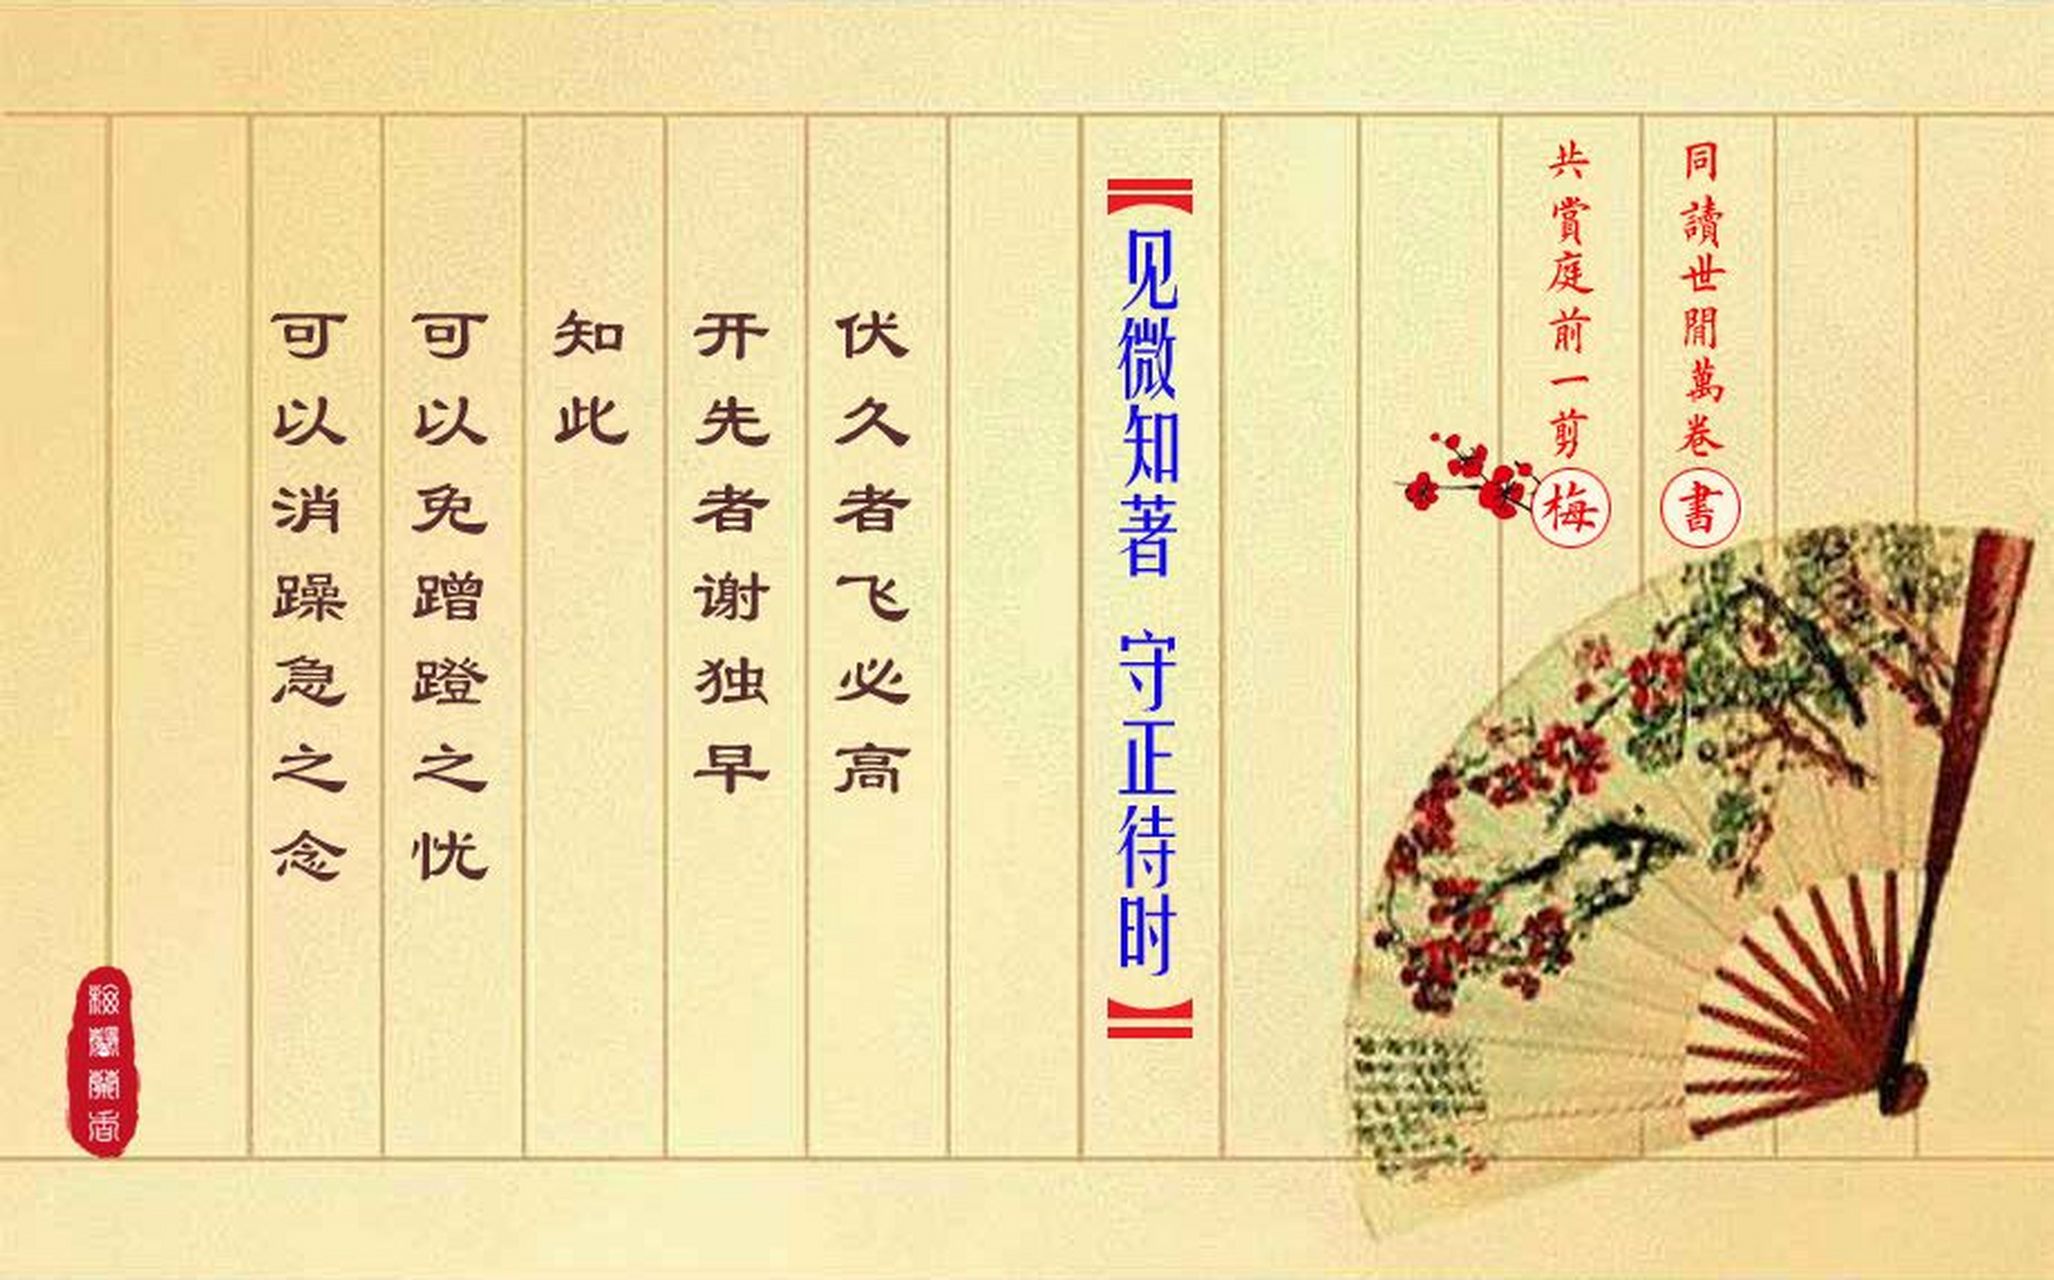 同讀世間萬卷書
共賞庭前一剪梅
【见微知著 守正待时】
伏久者飞必高
开先者谢独早
知此
可以免蹭蹬之忧
可以消躁急之念